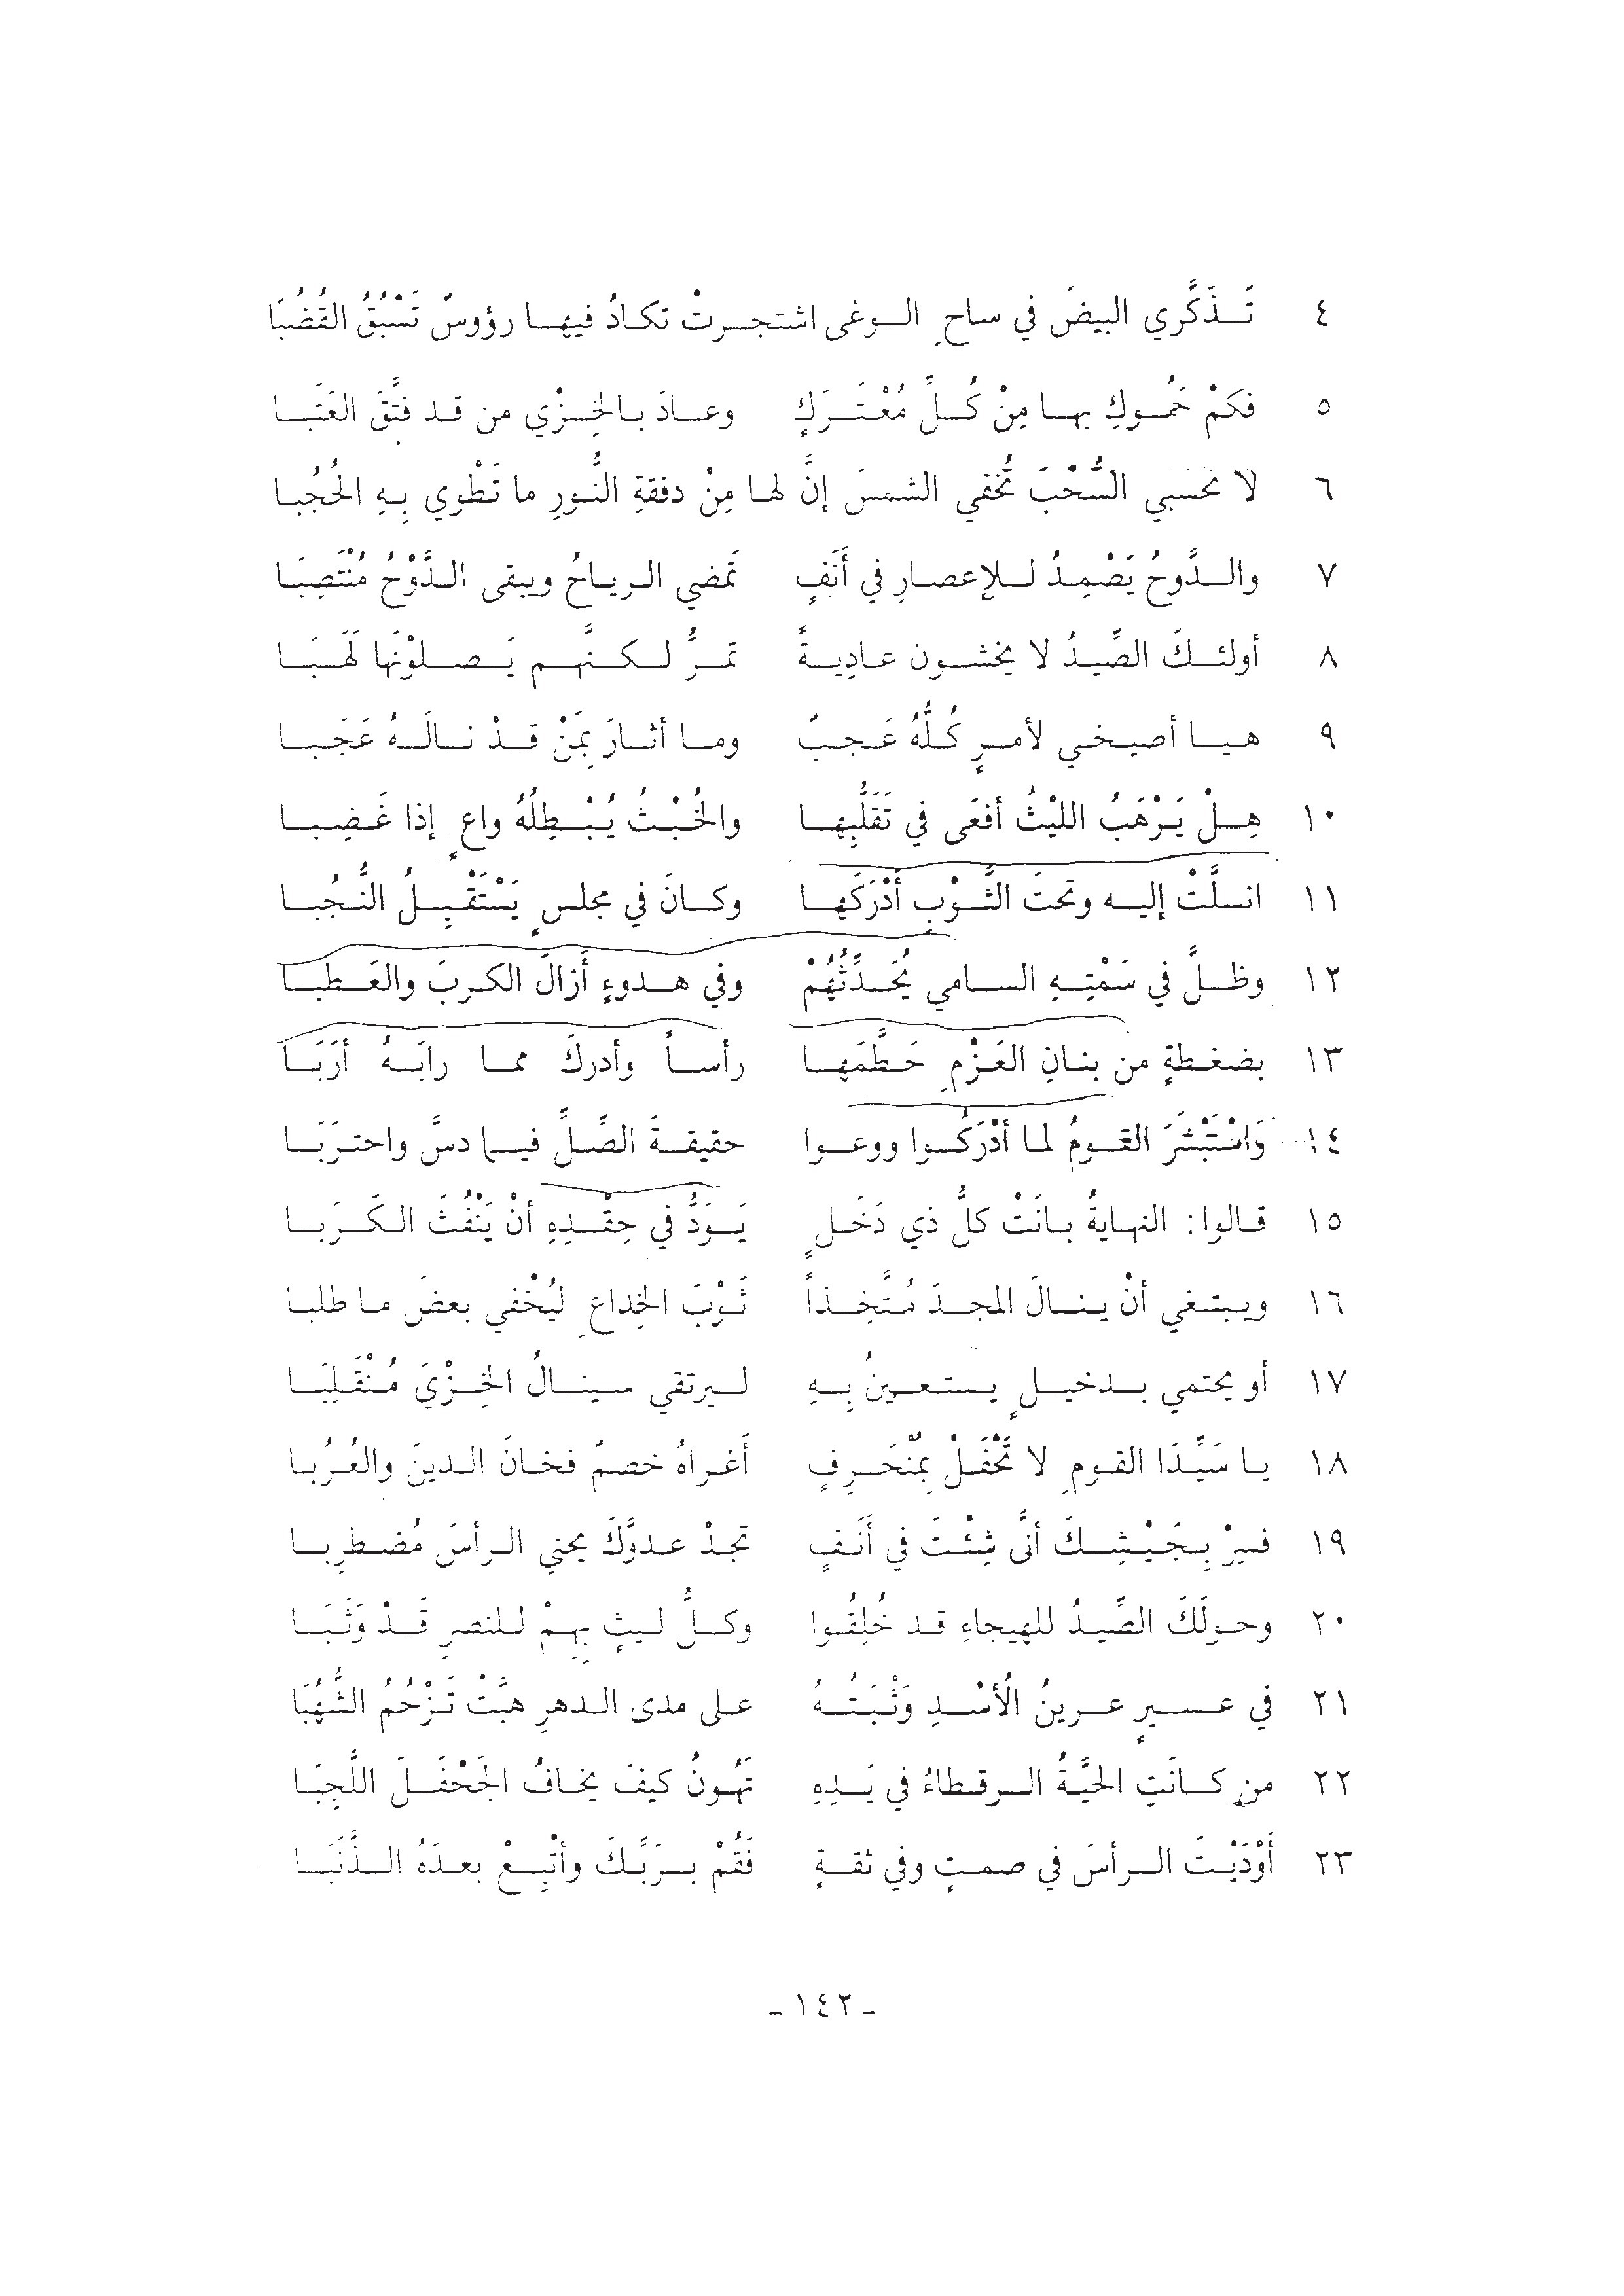 ٤ تَذَكَّري البيضَ في ساحِ الوغى اشتجرتْ تكادُ فيها رؤوسٌ تَسْبُقُ القُضُبَا
٥ فكَمْ حَمُوكِ بها مِنْ كُلِّ مُعْتَرَكٍ وعادَ بالخِزْيِ من قد فتَّقَ العَتَبا
٦ لا تحسبي السُّحْبَ تُخفي الشمسَ إنَّ لها مِنْ دفقةِ النُّورِ ما تَطْوي بِهِ الحُجُبا
٧ والدَّوحُ يَصْمِدُ للإعصارِ في أَنَفٍ تَمضي الرياحُ ويبقى الدَّوْحُ مُنْتَصِبَا
٨ أولئكَ الصِّيدُ لا يخشون عادِيةً تمرُّ لكنَّهم يَصلوْنَها لَهَبَا
٩ هيا أصيخي لأمرٍ كُلُّهُ عَجبٌ وما أثارَ بِمَنْ قدْ نالَهُ عَجَبا
١٠ هِلْ يَرْهَبُ الليْثُ أفعَى في تَقَلُّبِها والخُبْثُ يُبْطِلُهُ واعٍ إذا غَضِبا
١١ انسلَّتْ إليه وتحتَ الثَّوْبِ أدْرَكَها وكانَ في مجلسٍ يَسْتَقْبِلُ النُّجُبا
١٢ وظلَّ في سَمْتِهِ السامي يُحَدِّثُهُمْ وفي هدوءٍ أَزالَ الكربَ والعَطبا
١٣ بضغطةٍ من بنانِ العَزْمِ حَطَّمَها رأساً وأدركَ مما رابَهُ أرَبَا
١٤ وَاسْتَبْشَرَ القومُ لما أدْرَكُوا ووعوا حقيقةَ الصِّلِّ فيما دسَّ واحترَبَا
١٥ قالوا: النهايةُ بانَتْ كلُّ ذي دَخَلٍ يَوَدُّ في حِقْدِهِ أنْ يَنْفُثَ الكَرَبا
١٦ ويبتغي أنْ ينالَ المجدَ مُتَّخِذاً ثَوْبَ الخِداعِ ليُخْفي بعضَ ما طلبا
١٧ أو يحتمي بدخيلٍ يستعينُ بِهِ ليرتقي سينالُ الخِزْيَ مُنْقَلِبَا
١٨ يا سَيِّدَا القومِ لا تَحْفَلْ بمُنْحَرِفٍ أَغراهُ خصمٌ فخانَ الدينَ والعُرُبا
١٩ فسِرْ بِجَيْشِكَ أنَّى شِئْتَ في أَنَفٍ تجدْ عدوَّكَ يحني الرأسَ مُضطرِبا
٢٠ وحولَكَ الصِّيدُ للهيجاءِ قد خُلِقُوا وكلُّ ليثٍ بِهِمْ للنصرِ قَدْ وَثَبَا
٢١ في عسيرٍ عرينُ الُأسْدِ وَثْبَتُهُ على مدى الدهرِ هبَّتْ تَزْحُمُ الشُّهُبَا
٢٢ من كانَتِ الحيَّةُ الرقطاءُ في يَدِهِ تَهُونُ كيفَ يخافُ الجَحْفَلَ اللَّجِبَا
٢٣ أَوْدَيْتَ الرأسَ في صمتٍ وفي ثقةٍ فَقُمْ بربِّكَ وأتْبِعْ بعدَهُ الذَّنَبَا
- ١٤٢ -